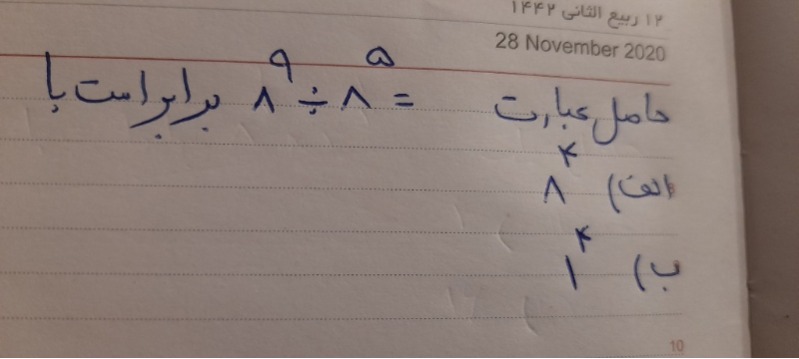 ۱۲ ربیع الثانی ۱۴۴۲
28 November 2020
حاصل عبارت = ۸^۹ ÷ ۸^۵ برابر است با
الف) ۸^۴
ب) ۱^۴
10